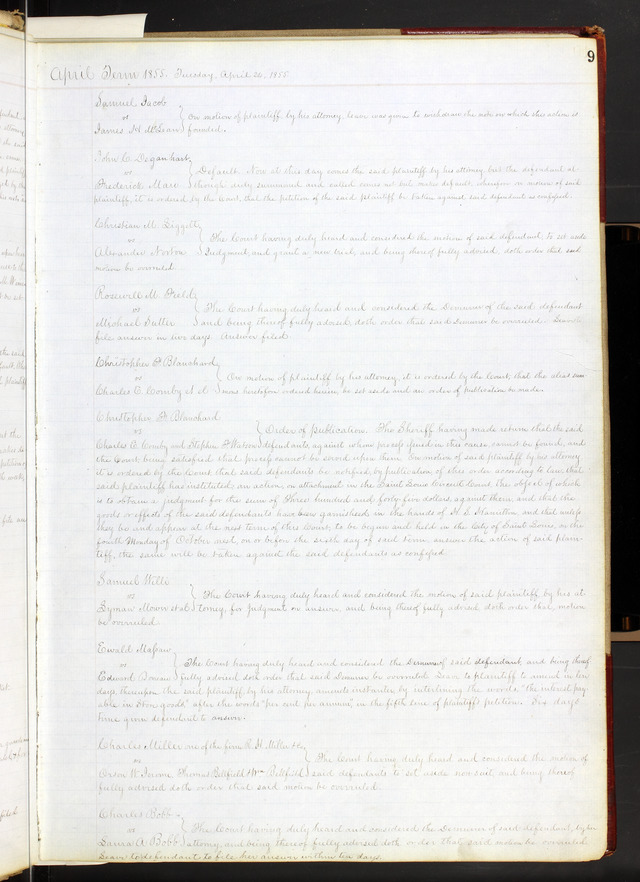 9
April Term 1855. Tuesday, April 24, 1855
Samuel Jacob
vs
James M McLean
On motion of plaintiff by his attorney, leave was given to withdraw the note on which this action is
founded.
John C Deganhart
vs
Frederick Mare
Default. Now at this day comes the said plaintiff by his attorney, but the defendant at
though duly summoned and called comes not but makes default, wherefore on motion of said
plaintiff, it is ordered by the Court, that the petition of the said plaintiff be taken against said defendant as confessed.
Christian M. Liggett
vs
Alexander Norton
The Court having duly heard and considered the motion of said defendant, to set aside
Judgment, and grant a new trial, and being thereof fully advised, doth order that said
motion be overruled
Roswell M. Field
vs
Michael Sutter
The Court having duly heard and considered the Demurrer of the said defendant
and being thereof fully advised, doth order that said Demurrer be overruled. Leave to
file answer in five days. Answer filed.
Christopher P Blanchard
vs
Charles C Comby et al
On motion of plaintiff by his attorney, it is ordered by the Court, that the alias sum
mons heretofore ordered herein be set aside and an order of publication be made.
Christopher P. Blanchard
vs
Charles C. Comby and Stephen P Watson
Order of publication. The Sheriff having made return that the said
defendants, against whom process issued in this cause, cannot be found, and
the Court being satisfied that process cannot be served upon them. On motion of said plaintiff by his attorney,
it is ordered by the Court that said defendants be notified by publication of this order according to law that
said plaintiff has instituted an action, on attachment in the Saint Louis Circuit Court, the object of which
is to obtain a judgment for the sum of Three hundred and forty five dollars against them, and that the
goods or effects of the said defendants have been garnisheed in the hands of H. S. Hamilton and that unless
they be and appear at the next term of this Court, to be begun and held in the City of Saint Louis, on the
fourth Monday of October next, on or before the sixth day of said term, answer the action of said plain-
tiff, the same will be taken against the said defendants as confessed.
Samuel Willi
vs
Lyman Mower et al
The Court having duly heard and considered the motion of said plaintiff, by his at
torney, for judgment on answer, and being thereof fully advised doth order that, motion
be overruled.
Ewald Massow
vs
Edward
The Court having duly heard and considered the Demurrer of said defendant, and being thereof
fully advised doth order that said Demurrer be overruled. Leave to plaintiff to amend in ten
days thereupon the said plaintiff by his attorney amends instanter by interlining the words, "the interest pay-
able in Store goods" after the words "per cent per annum," in the fifth line of plaintiff's petition. Six days
time given defendant to answer.
Charles Miller one of the firm R. H. Miller & Co
vs
Orson W. Thomas Bellfield & Wm Bellfield
The Court having duly heard and considered the motion of
said defendants to set aside non suit and being thereof
fully advised doth order that said motion be overruled.
Charles Bobb
vs
Laura A. Bobb
The Court having duly heard and considered the Demurrer of said defendant, by her
attorney, and being thereof fully advised doth order that said motion be overruled
Leave to defendant to file her answer within ten days.